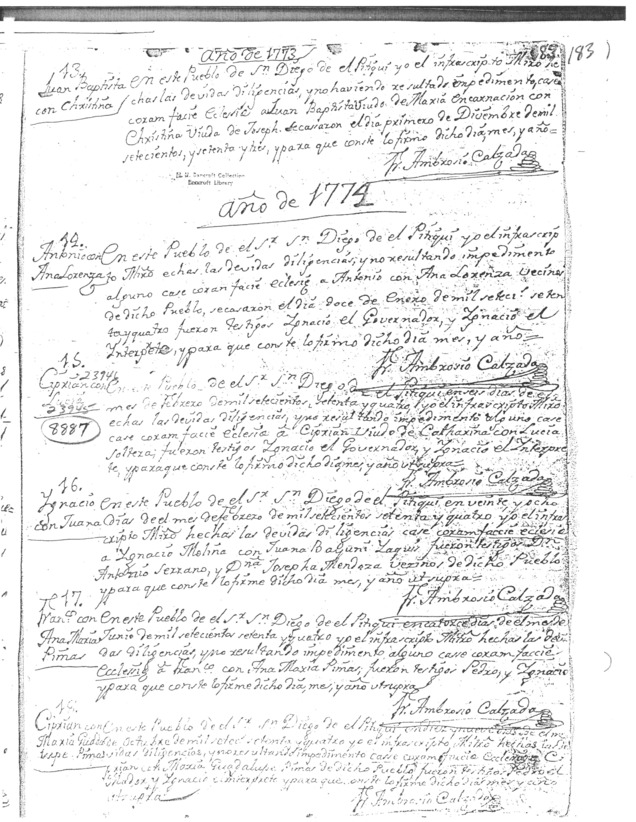 año de 1773
83 183)
13.
Juan Baptista En este Pueblo de Sn Diego de el Pitqui yo el infrascripto Miro he
con Christña chas las devidas diligencias, y no haviendo resultado impedimento, case
coram facie Eclesiȩ a Juan Baptista Viudo de Maria Encarnacion con
Christiña Viuda de Joseph. Se casaron el dia primero de Disembre de mil
setecientos, y setenta y tres, y para que conste lo firmo dicho dia, mes, y año=
Fr. Ambrosio Calzada
Bancroft Collection
Bancroft Library
año de 1774
14.
Antonio con En este Pueblo de el Sr Sn Diego de el Pitqui yo el infrascrip
Ana Lorenza to Miro echas las devidas diligencias, y no resultando impedimento
alguno case coram facie eclesiȩ a Antonio con Ana Lorenza Vecinos
de dicho Pueblo, se casaron el dia doce de Enero de mil seteci.s seten
ta y quatro fueron testigos Ygnacio el Governador, y Ygnacio el
Interprete, y para que conste lo firmo dicho dia mes, y año=
Fr. Ambrosio Calzada
15.
23946
Ciprian con En este Pueblo de el Sr Sn Diego de el Pitqui en seis dias de el
mes de Febrero de mil setecientos, setenta y quatro yo el infrascripto Miro
8887 echas las devidas diligencias, y no resultando impedimento alguno case
case coram facie Eclesiȩ â Ciprian Viudo de Catharina con Lucia
Soltera; fueron testigos Ygnacio el Governador y Ygnacio el Interpre
te, y para que conste lo firmo dicho dia, mes, y año ut supra=
Fr. Ambrosio Calzada
16.
Ygnacio En este Pueblo de el Sr Sn Diego de el Pitqui, en veinte, y ocho
con Juana dias de el mes de Febrero de mil setecientos setenta y quatro yo el infras
cripto Miro hechas las devidas diligencias case coram facie eclesiȩ
a Ygnacio Molina con Juana Yaquis fueron testigos Dn
Antonio Serrano, y Dña Josepha Mendoza vecinos de dicho Pueblo
y para que conste lo firme dicho dia mes, y año ut supra=
Fr. Ambrosio Calzada
17.
Fran.co con En este Pueblo de el Sr Sn Diego de el Pitqui en catorce dias de el mes de
Ana Maria Junio de mil setecientos setenta y quatro yo el infrascripto Miro hechas las devi
Pimas das diligencias, y no resultando impedimento alguno case coram facie
Ecclesiȩ â Franco con Ana Maria Pimas; fueron testigos Pedro, y Ygnacio
y para que conste lo firme dicho dia, mes, y año ut supra
Fr. Ambrosio Calzada
18.
Ciprian con En este Pueblo de el Sr Sn Diego de el Pitqui en diez y nueve dias de el m
Maria Guadalupe Octubre de mil setec.s setenta y quatro yo el infrascripto Miro hechas las
Pimas diligencias, y no resultando impedimento case coram facie Ecclesiȩ a Ci
prian con Maria Guadalupe Pimas de dicho Pueblo fueron testigos Pedro el
y Ygnacio el interprete y para que conste lo firme dicho dia, mes, y año
ut supra
Fr. Ambrosio Calzada